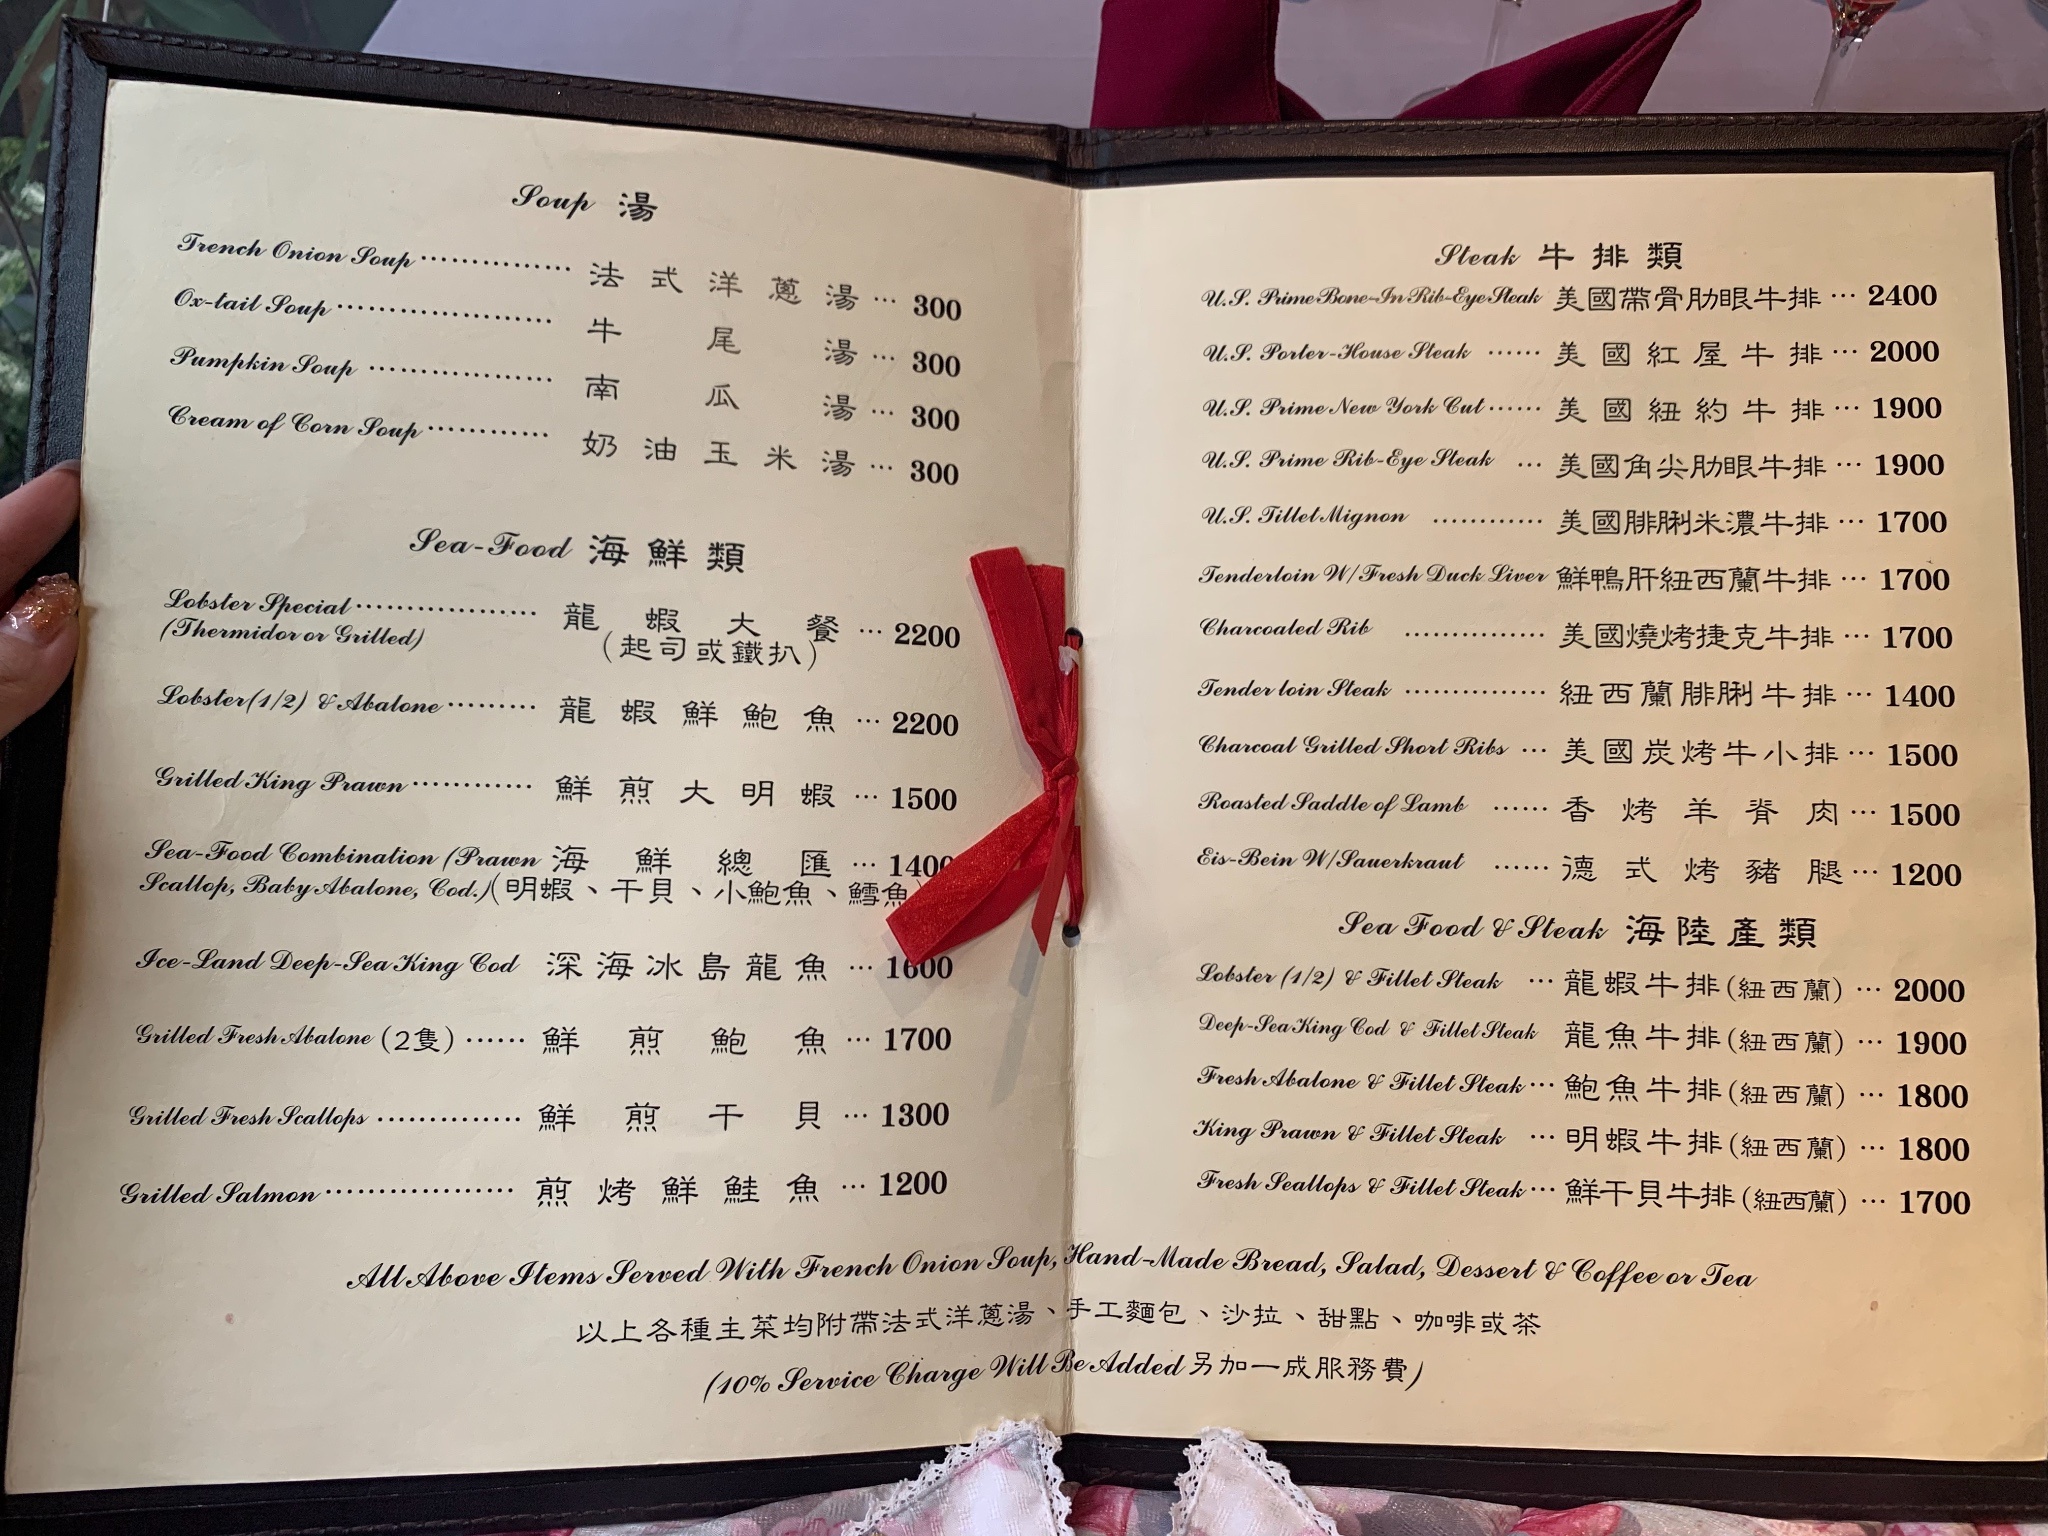 Soup 湯
French Onion Soup 法式洋蔥湯 … 300
Ox-tail Soup 牛尾湯 … 300
Pumpkin Soup 南瓜湯 … 300
Cream of Corn Soup 奶油玉米湯 … 300
Sea-Food 海鮮類
Lobster Special 龍蝦大餐 … 2200
(Thermidor or Grilled) (起司或鐵扒)
Lobster(1/2) & Abalone 龍蝦鮮鮑魚 … 2200
Grilled King Prawn 鮮煎大明蝦 … 1500
Sea-Food Combination (Prawn 海鮮總匯 … 1400
Scallop, Baby Abalone, Cod.) (明蝦、干貝、小鮑魚、鱈魚)
Ice-Land Deep-Sea King Cod 深海冰島龍魚 … 1600
Grilled Fresh Abalone (2隻) 鮮煎鮑魚 … 1700
Grilled Fresh Scallops 鮮煎干貝 … 1300
Grilled Salmon 煎烤鮮鮭魚 … 1200
Steak 牛排類
U.S. Prime Bone-In Rib-Eye Steak 美國帶骨肋眼牛排 … 2400
U.S. Porter-House Steak 美國紅屋牛排 … 2000
U.S. Prime New York Cut 美國紐約牛排 … 1900
U.S. Prime Rib-Eye Steak 美國角尖肋眼牛排 … 1900
U.S. Fillet Mignon 美國腓脷米濃牛排 … 1700
Tenderloin W/Fresh Duck Liver 鮮鴨肝紐西蘭牛排 … 1700
Charcoaled Rib 美國燒烤捷克牛排 … 1700
Tender loin Steak 紐西蘭腓脷牛排 … 1400
Charcoal Grilled Short Ribs 美國炭烤牛小排 … 1500
Roasted Saddle of Lamb 香烤羊脊肉 … 1500
Eis-Bein W/Sauerkraut 德式烤豬腿 … 1200
Sea Food & Steak 海陸產類
Lobster (1/2) & Fillet Steak 龍蝦牛排(紐西蘭) … 2000
Deep-Sea King Cod & Fillet Steak 龍魚牛排(紐西蘭) … 1900
Fresh Abalone & Fillet Steak 鮑魚牛排(紐西蘭) … 1800
King Prawn & Fillet Steak 明蝦牛排(紐西蘭) … 1800
Fresh Seallops & Fillet Steak 鮮干貝牛排(紐西蘭) … 1700
All Above Items Served With French Onion Soup, Hand-Made Bread, Salad, Dessert & Coffee or Tea
以上各種主菜均附帶法式洋蔥湯、手工麵包、沙拉、甜點、咖啡或茶
(10% Service Charge Will Be Added 另加一成服務費)